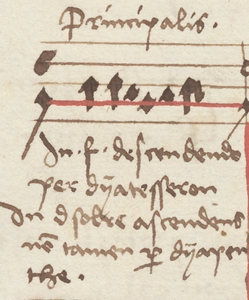 Principalis.
In .f. descendendo
per dyatesseron
In dsolre ascendens
nō tamen ꝑ dyapen
the.